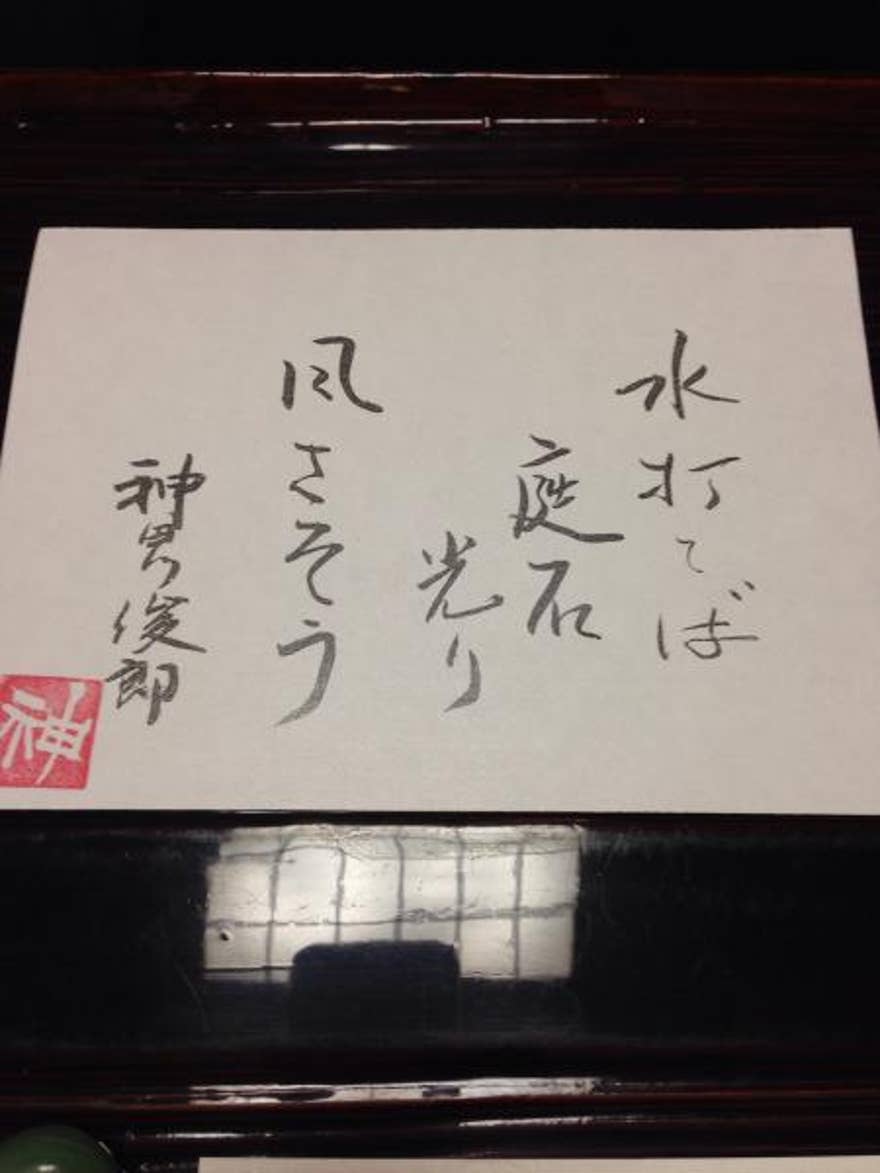 水打てば
庭石
光り
風さそう
神男俊郎
神